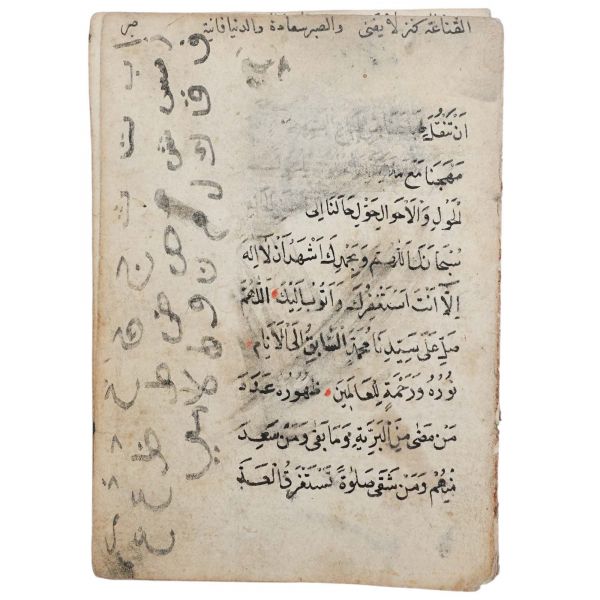 القناعة كنز لا يفنى والصبر سعادة والدنيا فانية
ا ب ت ث ج ح خ
ر س ش ص ض ط ظ ع غ
ف ق ك ل م ن و ه لا ي
اَنْ
مُهَجِنَا مَعَ
لْحَوْلِ وَالْاَحْوَالِ حَوِّلْ حَالَنَا اِلَى
سُبْحَانَكَ اللّٰهُمَّ وَبِحَمْدِكَ اَشْهَدُ اَنْ لَا اِلٰهَ
اِلَّا اَنْتَ اَسْتَغْفِرُكَ وَاَتُوبُ اِلَيْكَ اَللّٰهُمَّ
صَلِّ عَلٰى سَيِّدِنَا مُحَمَّدٍ السَّابِقِ اِلَى الْاَنَامِ
نُورُهُ وَرَحْمَةٍ لِلْعَالَمِينَ ظُهُورُهُ عَدَدَ
مَنْ مَضٰى مِنَ الْبَرِيَّةِ وَمَا بَقٰى وَمَنْ سَعِدَ
مِنْهُمْ وَمَنْ شَقٰى صَلٰوةً تَسْتَغْرِقُ الْعَدَّ